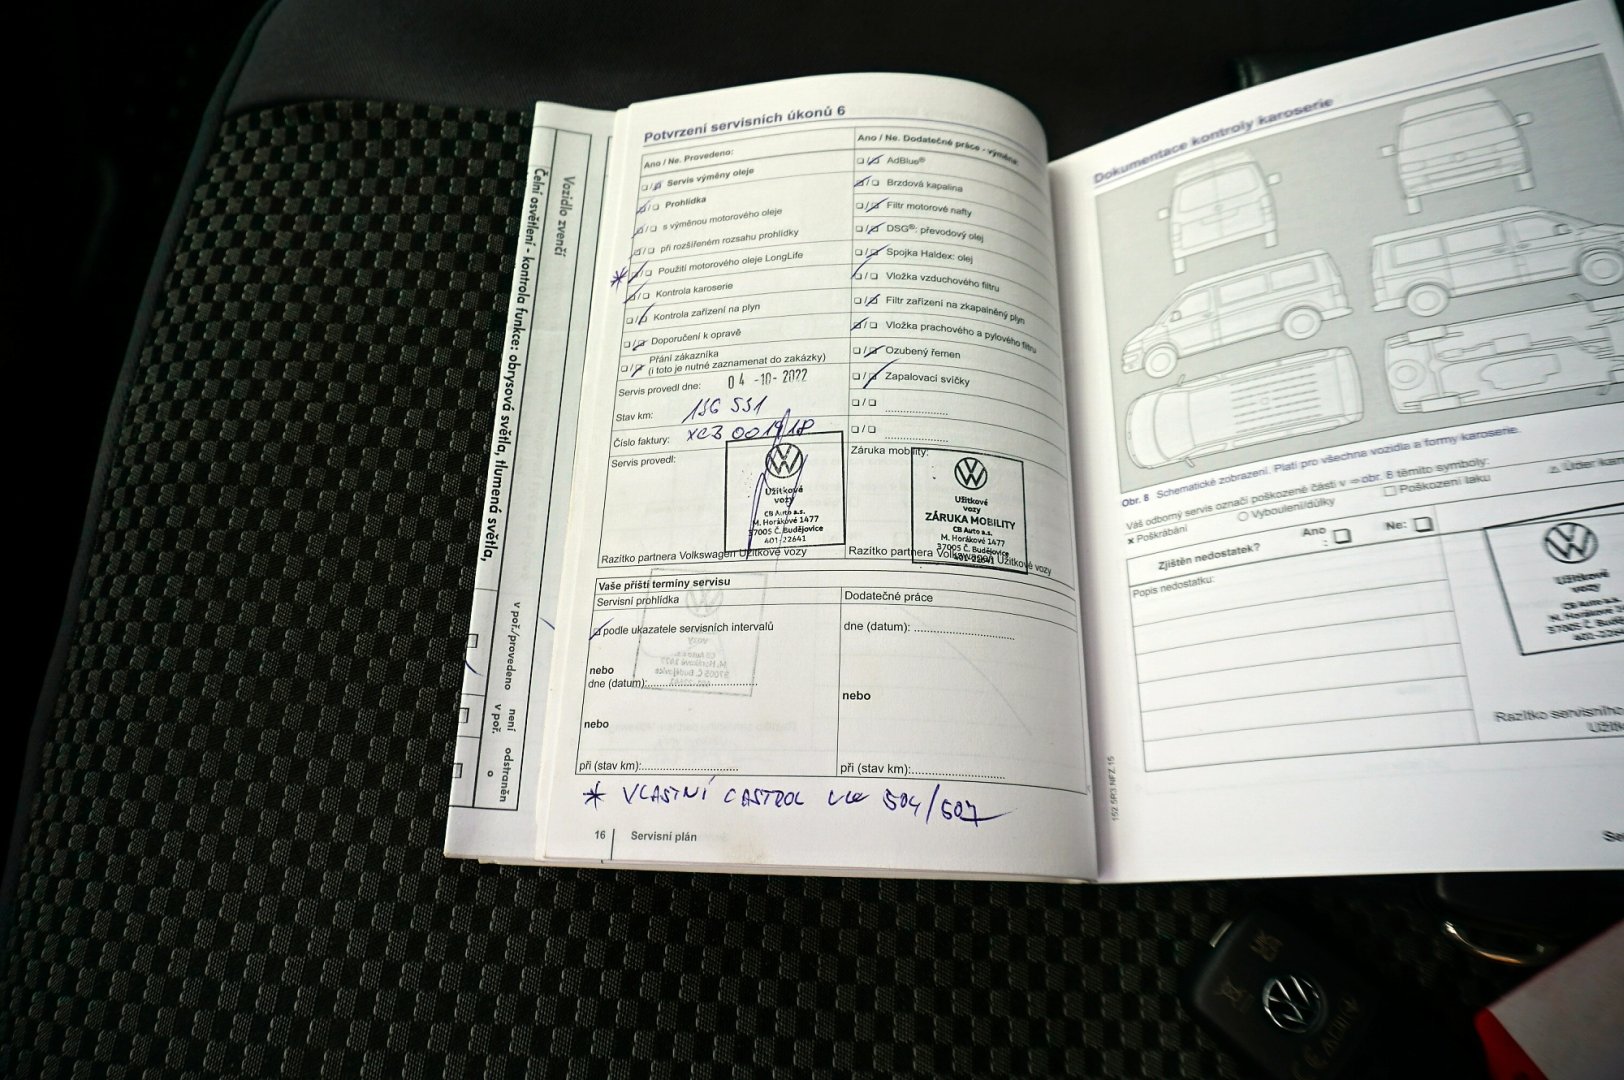 Čelní osvětlení - kontrola funkce: obrysová světla, tlumená světla,
Vozidlo zvenčí
v poř./provedeno
není v poř.
odstraněn
o
Potvrzení servisních úkonů 6
Ano / Ne. Provedeno:
Servis výměny oleje
Prohlídka
s výměnou motorového oleje
při rozšířeném rozsahu prohlídky
* Použití motorového oleje LongLife
Kontrola karoserie
Kontrola zařízení na plyn
Doporučení k opravě
Přání zákazníka
(i toto je nutné zaznamenat do zakázky)
Servis provedl dne: 04-10-2022
Stav km: 136 531
Číslo faktury:
Servis provedl:
Užitkové
vozy
CB Auto a.s.
M. Horákové 1477
37005 Č. Budějovice
401-22641
Razítko partnera Volkswagen Užitkové vozy
Ano / Ne. Dodatečné práce - výměna:
AdBlue®
Brzdová kapalina
Filtr motorové nafty
DSG®: převodový olej
Spojka Haldex: olej
Vložka vzduchového filtru
Filtr zařízení na zkapalněný plyn
Vložka prachového a pylového filtru
Ozubený řemen
Zapalovací svíčky
Záruka mobility:
Užitkové
vozy
ZÁRUKA MOBILITY
CB Auto a.s.
M. Horákové 1477
37005 Č. Budějovice
401-22641
Razítko partnera Volkswagen Užitkové vozy
Vaše příští termíny servisu
Servisní prohlídka
podle ukazatele servisních intervalů
nebo
dne (datum):
nebo
při (stav km):
Dodatečné práce
dne (datum):
nebo
při (stav km):
* VLASTNÍ CASTROL VW 504/507
16 Servisní plán
Dokumentace kontroly karoserie
Obr. 8 Schematické zobrazení. Platí pro všechna vozidla a formy karoserie.
Váš odborný servis označí poškozené části v ⇒ obr. 8 těmito symboly:
x Poškrábání
○ Vyboulení/důlky
□ Poškození laku
△ Úder
Zjištěn nedostatek?
Ano:
Ne:
Popis nedostatku:
Užitkové
vozy
CB Auto a.s.
M. Horákové
37005 Č. Bud
401-226
Razítko servisního
152.5R3.NFZ.15